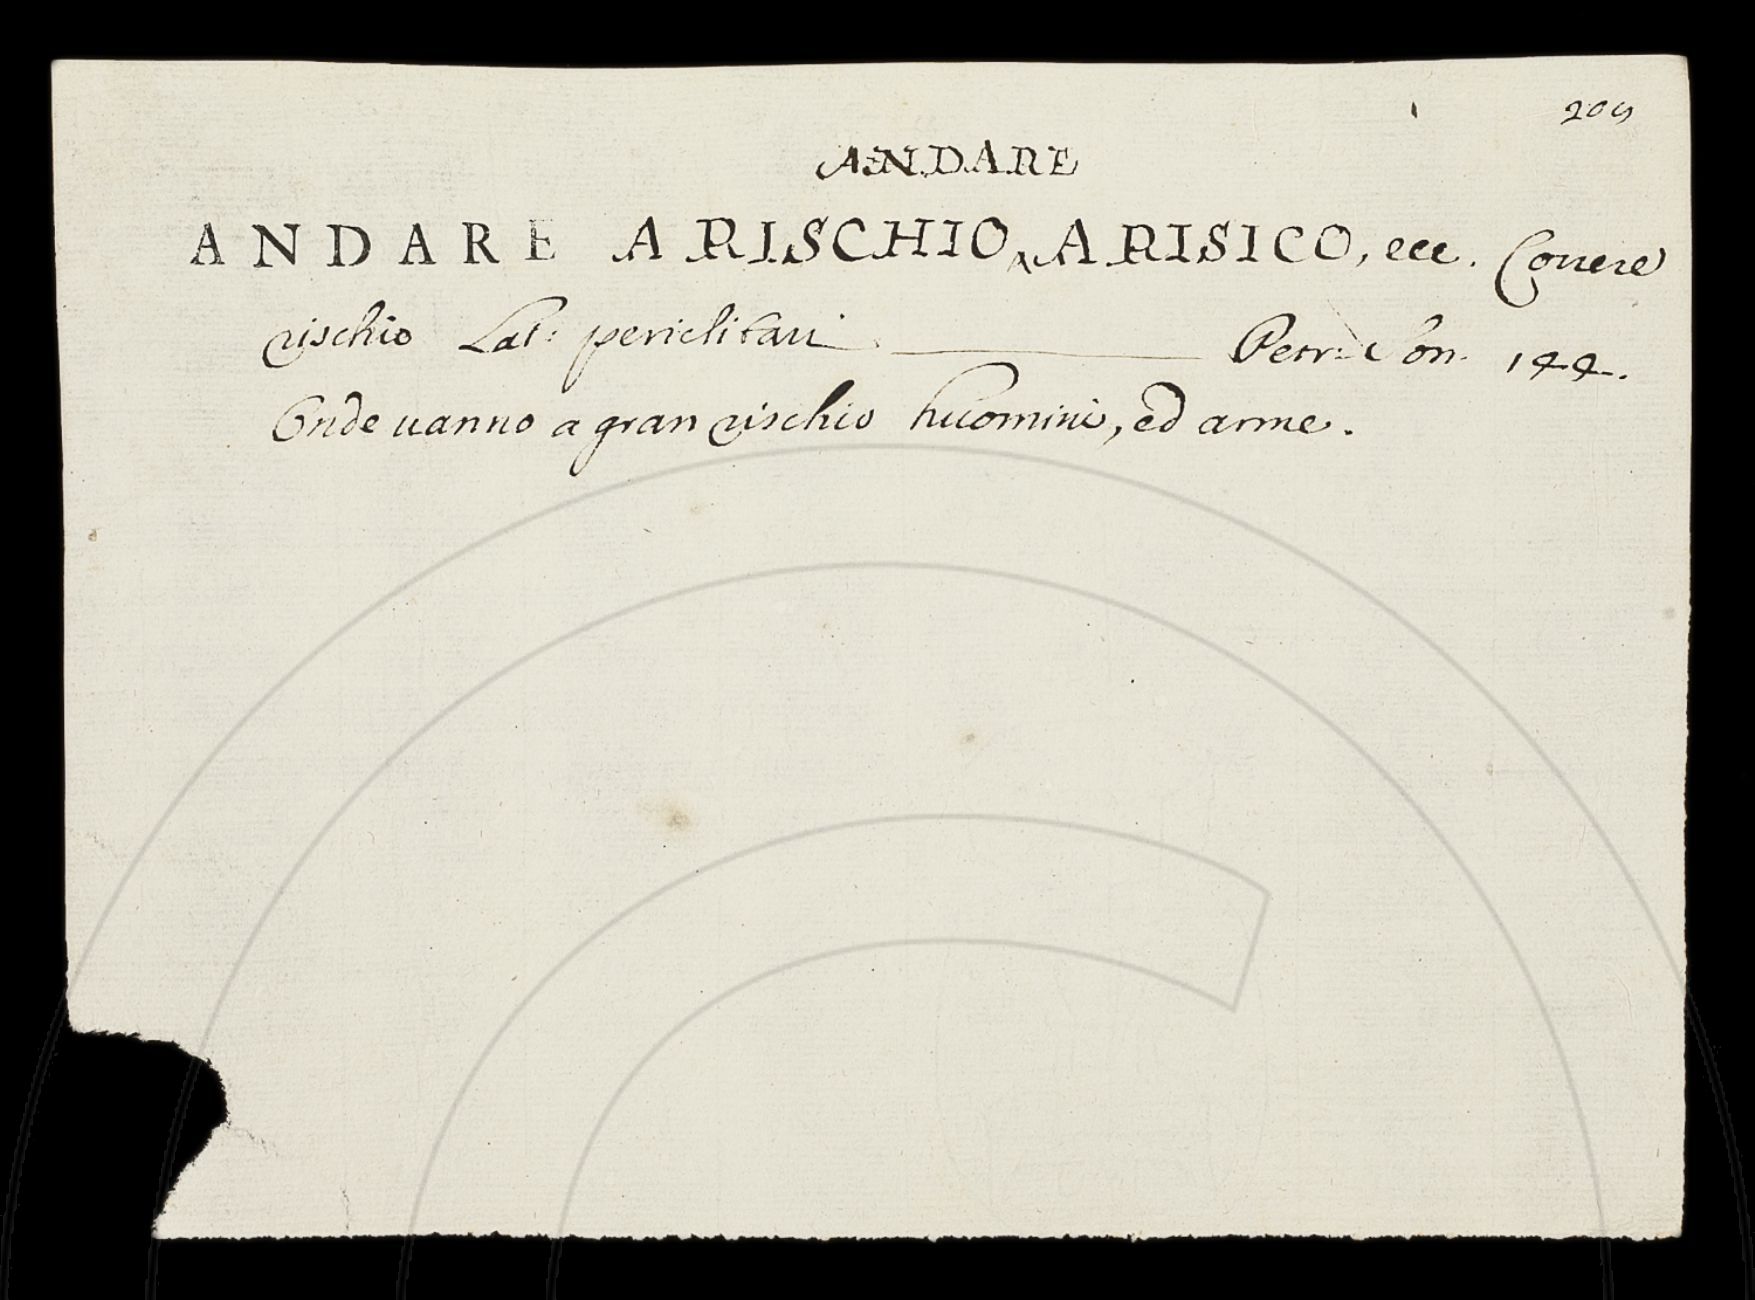 209
ANDARE
ANDARE A RISCHIO, A RISICO, ecc. Correre
rischio Lat: periclitari Petr: Son. 144.
Onde uanno a gran rischio huomini, ed arme.